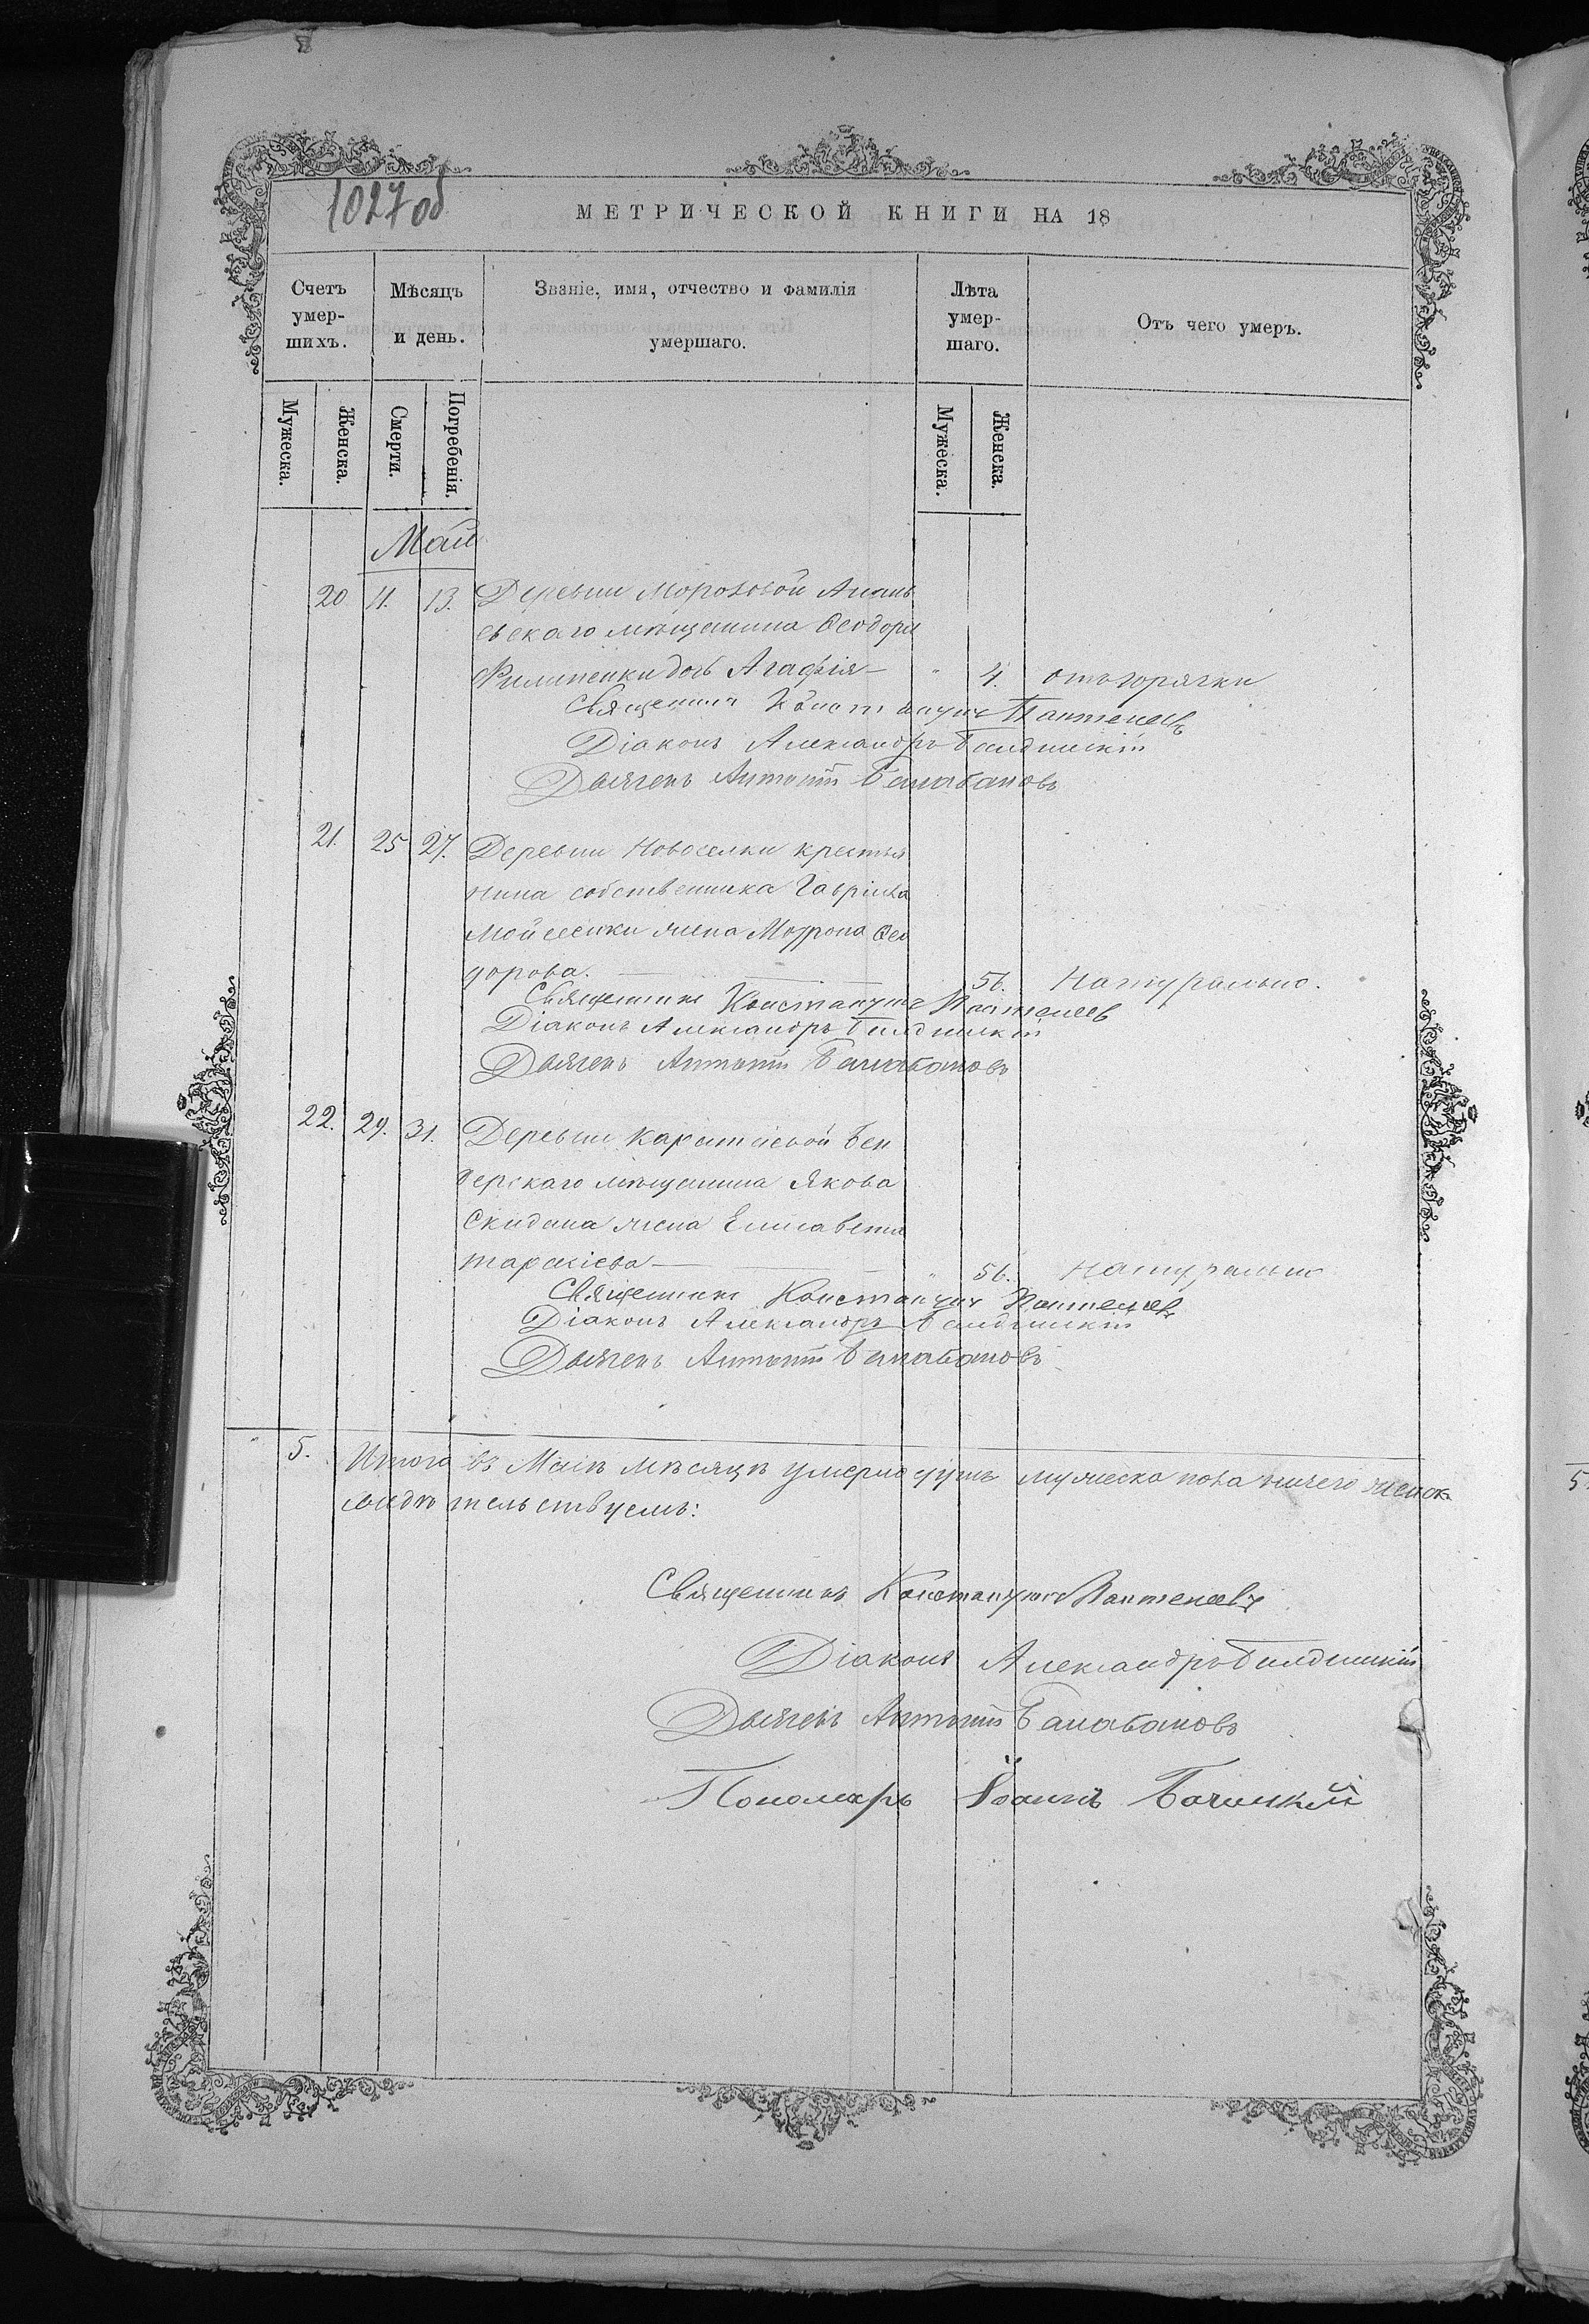 1027 об
МЕТРИЧЕСКОЙ КНИГИ НА 18
Счетъ умер-шихъ.
Мѣсяцъ и день.
Званіе, имя, отчество и фамилія умершаго.
Лѣта умер-шаго.
Отъ чего умеръ.
Мужеска.
Женска.
Смерти.
Погребенія.
Мужеска.
Женска.
Май
20 11. 13. Деревни Морозовой Анань
евскаго мѣщанина Ѳеодора
Филипенки дочь Агафія — " 4. отъ горячки
Священникъ Константинъ Пантелеевъ
Діаконъ Александръ
Дьячекъ Антоній Балабановъ
21. 25 27. Деревни Новоселки крестья
нина собственника Гавріила
Мойсеенки жена Матрона Ѳео
дорова. — 56. Натурально.
Священникъ Константинъ Пантелеев
Діаконъ Александръ
Дьячекъ Антоній Балабановъ
22. 29. 31. Деревни Бен
дерскаго мѣщанина Якова
Скидана жена Елисавета
Тарасіева — " 56. Натурально
Священникъ Константинъ Пантелеев
Діаконъ Александръ
Дьячекъ Антоній Балабановъ
" 5. Итого въ Маіѣ мѣсяцѣ умерло душъ мужеска пола ничего женск.
свидѣтельствуемъ:
Священникъ Константинъ Пантелеевъ
Діаконъ Александръ
Дьячекъ Антоній Балабановъ
Пономарь Іоаннъ Бачинскій